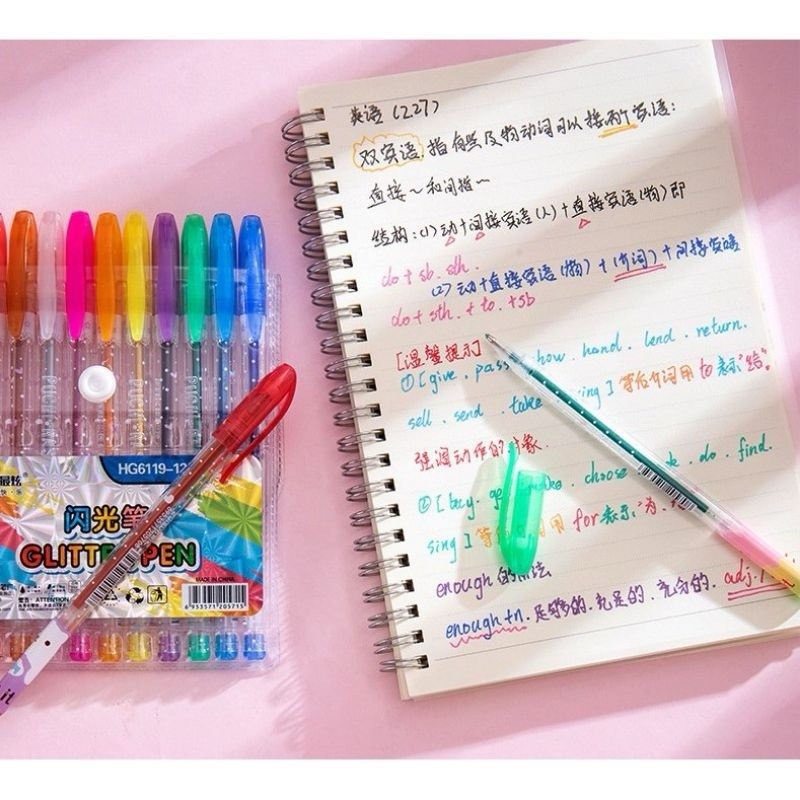 英语(227)
双宾语: 指有些及物动词可以接两个宾语:
直接~和间接~
结构:(1)动+间接宾语(人)+直接宾语(物)即
do + sb. sth.
(2)动+直接宾语(物)+(介词)+间接宾语
do + sth. + to. + sb
[温馨提示]
①[give. pass. how. hand. lend. return.
sell. send. take. ing] 等后介词用 to 表示"给"。
强调动作的对象.
②[buy. make. choose. do. find.
sing] 等 用 for表示"为、
enough 的用法
enough + n. 足够的. 充足的. 充分的. adj.
HG6119-12
闪光笔
GLITTER PEN
ATTENTION
MADE IN CHINA
6 933571 205715